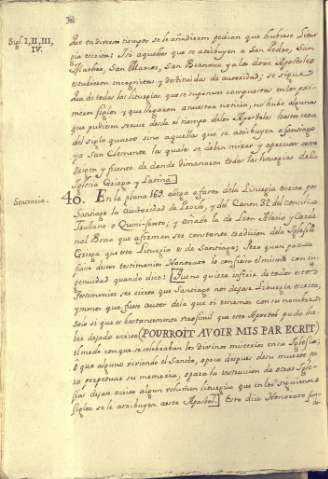 Sigl. I, II, III,
IV.
que en diversos tiempos se le añadieron podian que hubiese Litur
gia escrita: Ni aquellas que se atribuyen a San Pedro, San
Matheo, San Marcos, San Bernave y a los doce Apostoles
estubieron incognitas y destituidas de autoridad; se sigue
que de todas las liturgias, que se suponen compuestas en los pri-
meros siglos y que llegaron a nuestra noticia, no hubo algunas
que pudieron servir desde el tiempo de los Apostoles hasta cerca
del siglo quarto sino aquellas que se atribuyen a Santiago
ya San Clemente las quales se deben mirar y apreciar como
origen y fuente de donde dimanaron todas las liturgias de la
Iglesia Griega y Latina.
40. En la plana 169. alega a favor de la Liturgia escrita por
Santiago la autoridad de Leon, y del Canon 32 del concilio
Trullano o Quinisexto; y añade la de Leon y Carde
nal Bona que afirman ser constante tradicion de la Iglesia
Griega, que esta Liturgia es de Santiago; Pero quan poca
fuerza tienen testimonios Honorato lo confiesa el mismo con in-
genuidad quando dice:
testimonios ser cierto que Santiago nos dejase Liturgia escrita,
y menos que fuese autor de la que si tenemos con su nombre;
Solo si que es bastantemente verosimil que este Apostol pudo ha-
ber dejado escrito (POURROIT AVOIR MIS PAR ECRIT)
el modo con que se celebraban los Divinos misterios en su Iglesia;
o que alguno viviendo el Santo, o poco despues de su muerte pa-
ra perpetuar su memoria, o para la instruccion de otras Igle-
sias dejase escrito algun volumen liturgico que en los siguientes
siglos se le atribuyese a este Apostol. Esto dice Honorato